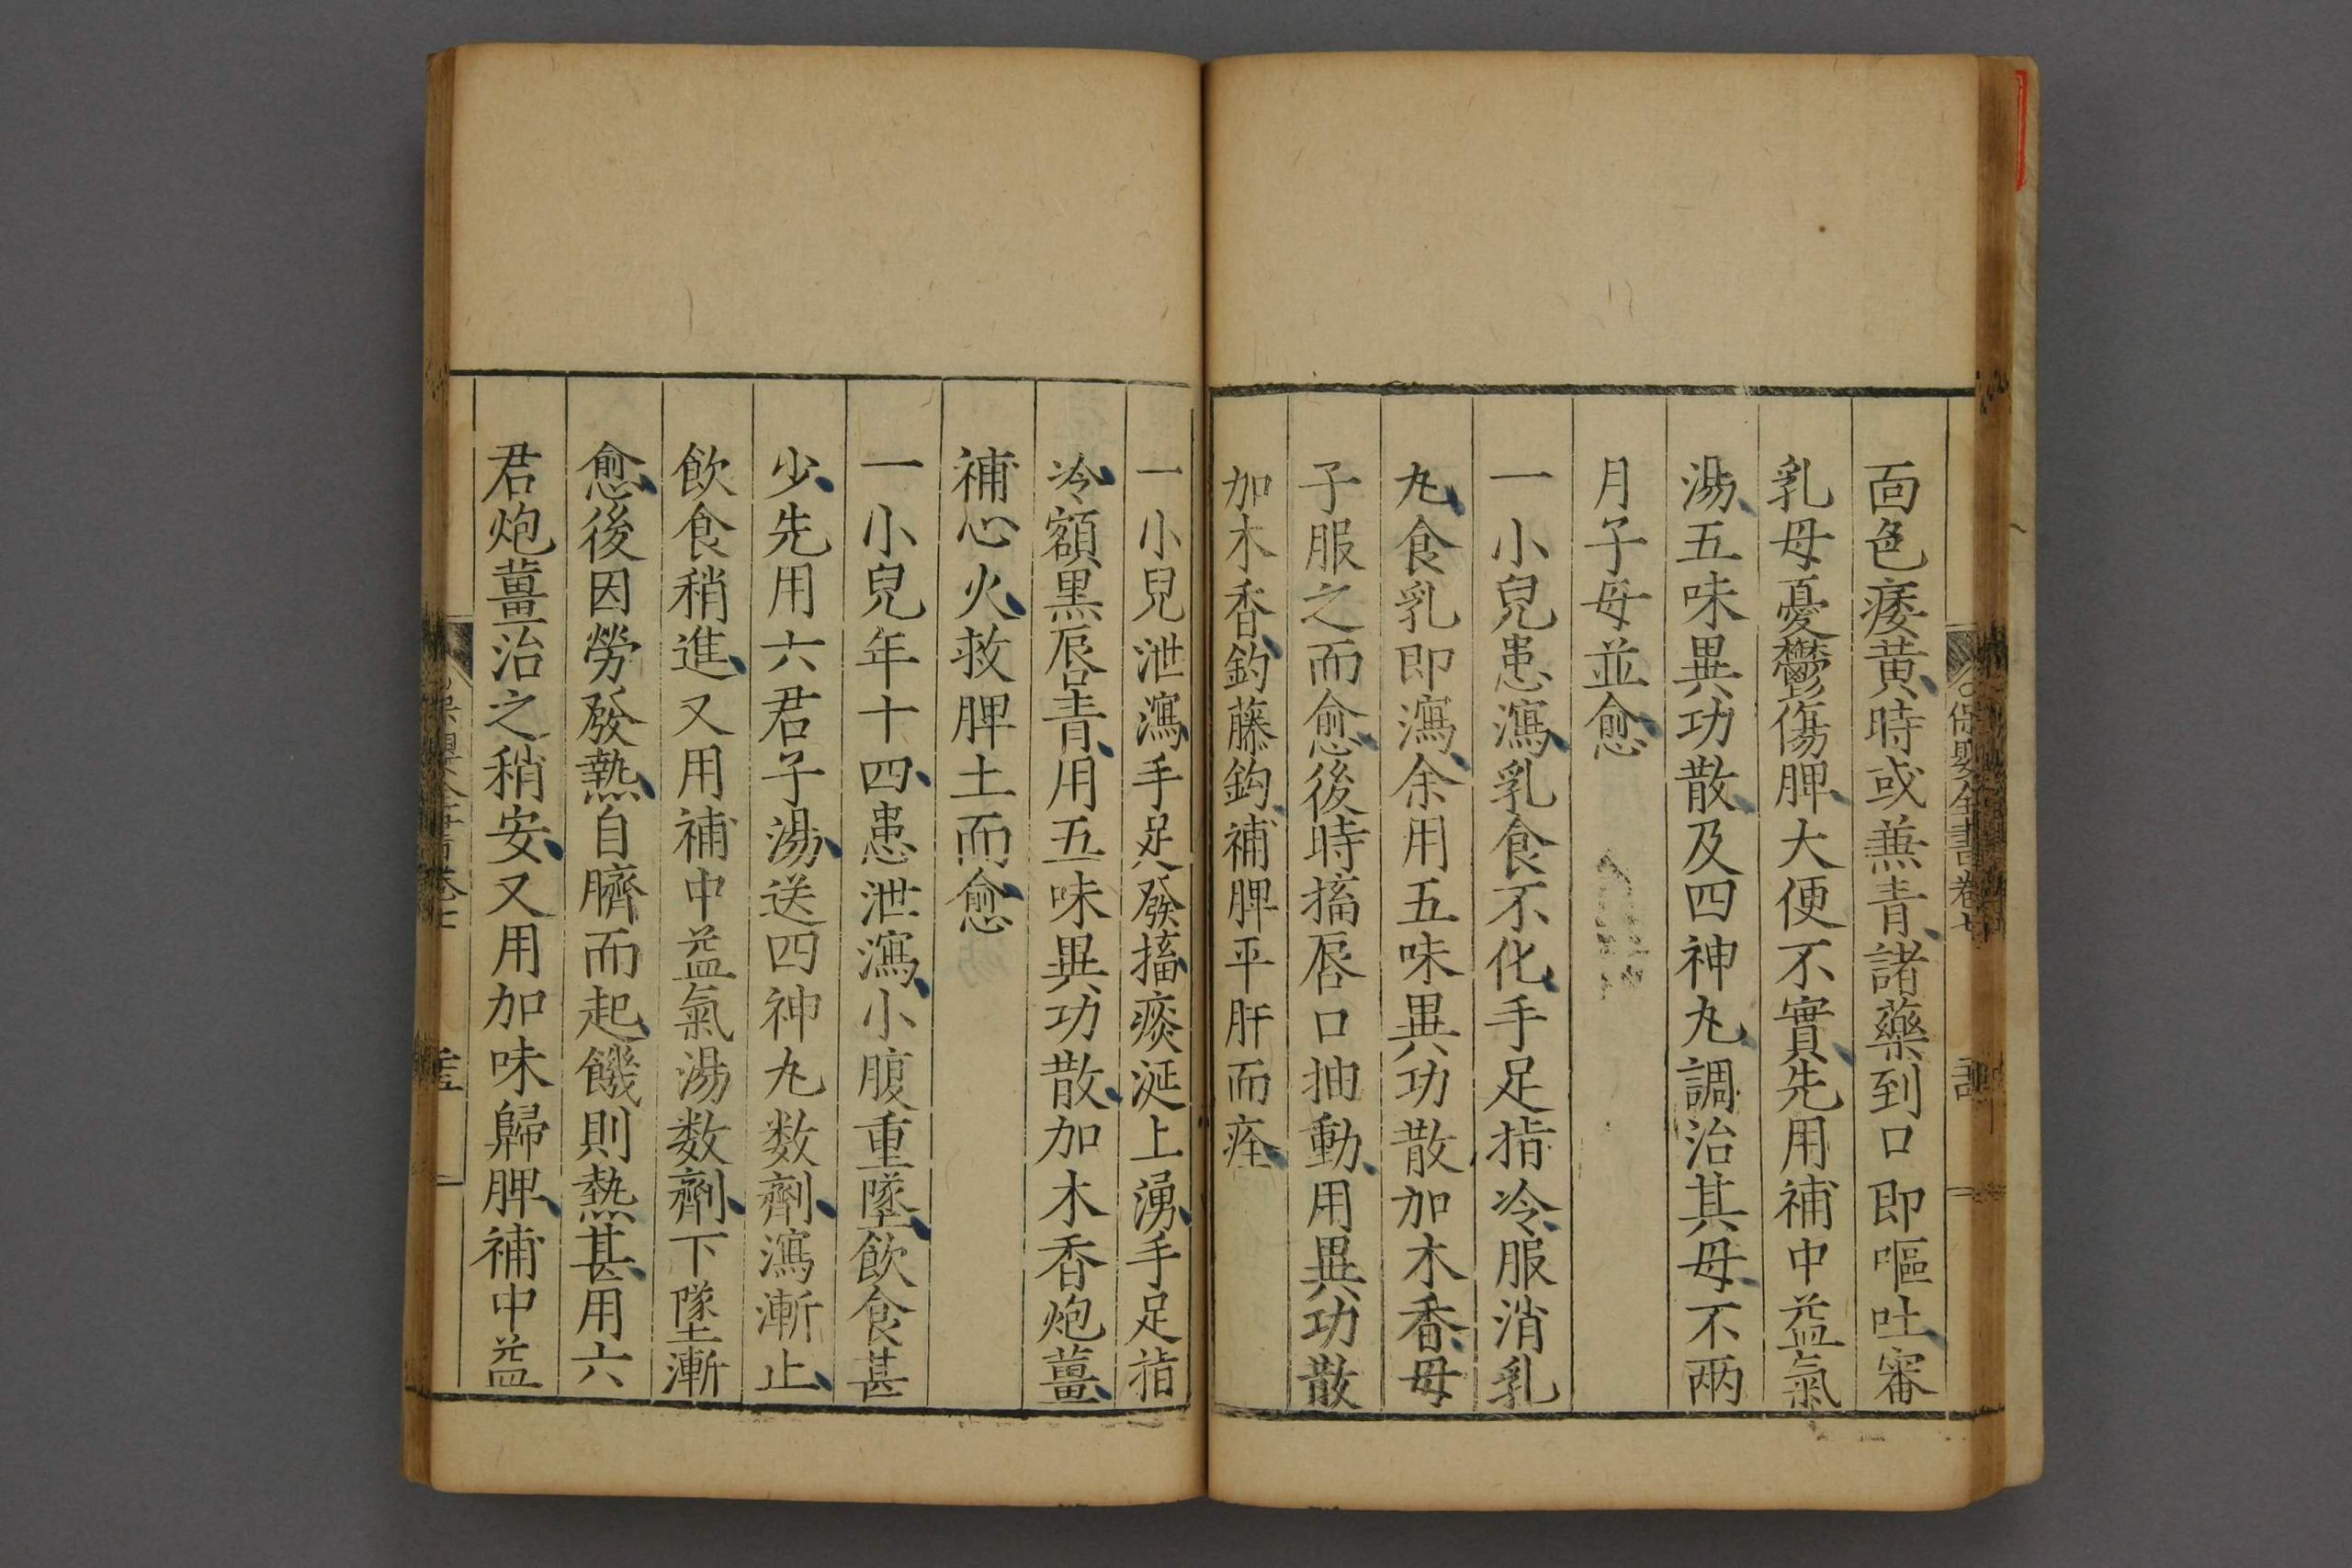 面色痿黃時或兼青諸藥到口即嘔吐審
乳母憂鬱傷脾大便不實先用補中益氣
湯五味異功散及四神丸調治其母不兩
月子母並愈
一小兒患瀉乳食不化手足指冷服消乳
丸食乳即瀉余用五味異功散加木香母
子服之而愈後時搐唇口抽動用異功散
加木香釣藤鈎補脾平肝而痊
保嬰全書卷七
一小兒泄瀉手足發搐痰涎上湧手足指
冷額黑唇青用五味異功散加木香炮薑
補心火救脾土而愈
一小兒年十四患泄瀉小腹重墜飲食甚
少先用六君子湯送四神丸数劑瀉漸止
飲食稍進又用補中益氣湯数劑下墜漸
愈後因勞發熱自臍而起饑則熱甚用六
君炮薑治之稍安又用加味歸脾補中益